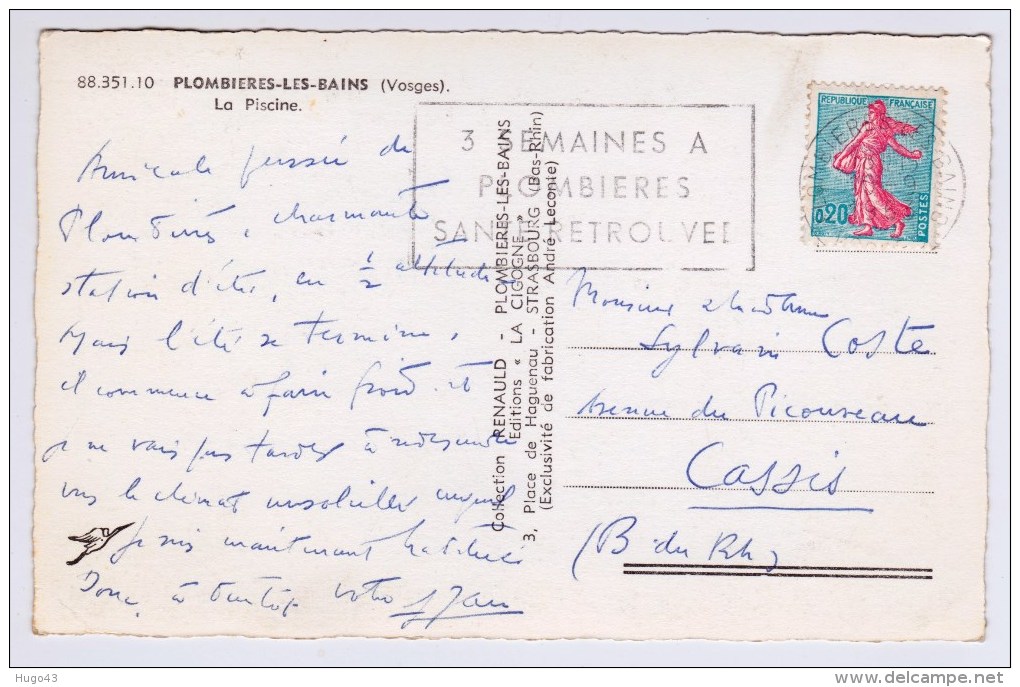 88.351.10 PLOMBIERES-LES-BAINS (Vosges).
La Piscine.
3 SEMAINES A
PLOMBIERES
SANTE RETROUVEE
REPUBLIQUE FRANÇAISE
0,20
POSTES
Amicale pensée de
Plombières, charmante
station d'été, en ½ altitude
Mais l'été se termine,
il commence à faire froid et
je ne vais pas tarder à
vers le climat
Je suis maintenant habitué
Donc, à bientôt votre
Collection RENAULD - PLOMBIERES-LES-BAINS
Editions « LA CIGOGNE »
3, Place de Haguenau - STRASBOURG (Bas-Rhin)
(Exclusivité de fabrication André Leconte)
Monsieur & Madame
Sylvain Coste
Avenue du Picouveau
Cassis
(B. du Rh)
Hugo43
delcampe.net